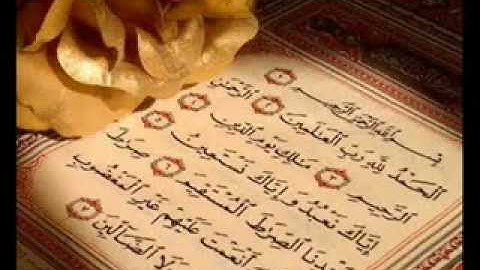 بسم الله الرحمن الرحيم
الحمد لله رب العلمين الرحمن
الرحيم ملك يوم الدين
إياك نعبد و إياك نستعين
الصرط المستقيم صرط
أنعمت عليهم غير المغضوب
لا الضالين